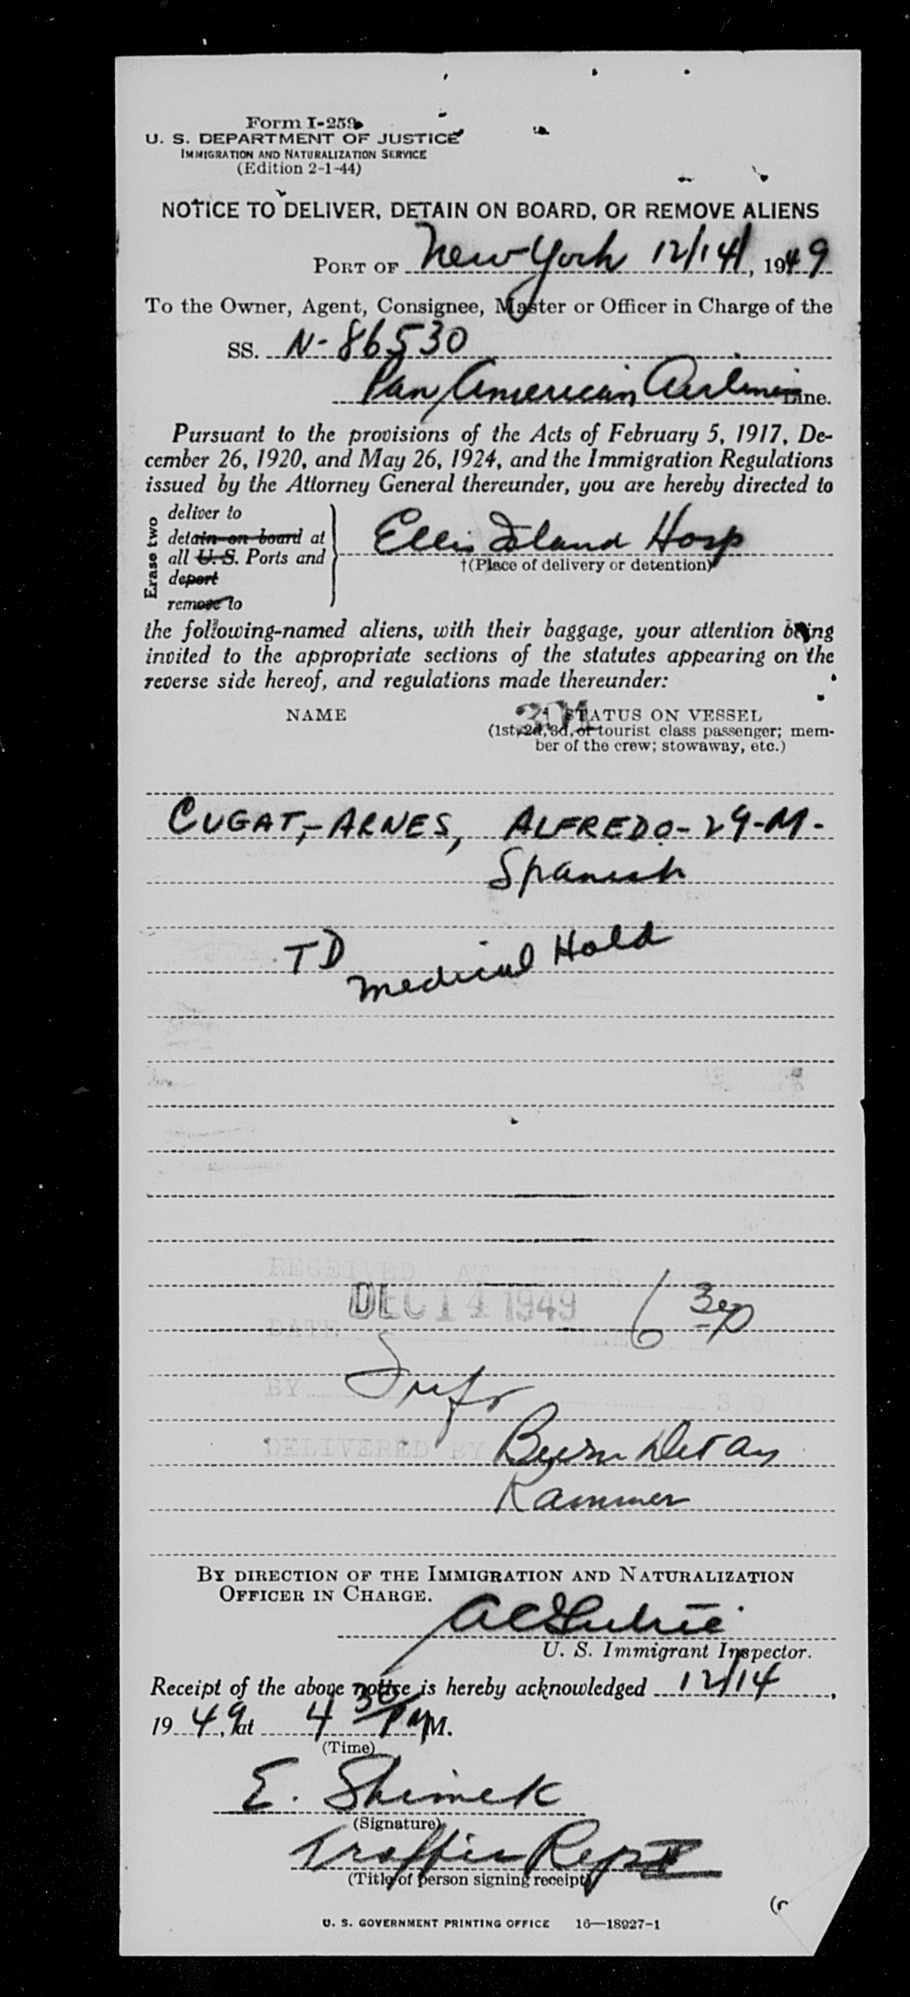 Form I-259
U. S. DEPARTMENT OF JUSTICE
IMMIGRATION AND NATURALIZATION SERVICE
(Edition 2-1-44)
NOTICE TO DELIVER, DETAIN ON BOARD, OR REMOVE ALIENS
PORT OF New York 12/14, 1949
To the Owner, Agent, Consignee, Master or Officer in Charge of the
SS. N-86530
Pan American Airlines Line.
Pursuant to the provisions of the Acts of February 5, 1917, De-
cember 26, 1920, and May 26, 1924, and the Immigration Regulations
issued by the Attorney General thereunder, you are hereby directed to
Erase two
deliver to
detain on board at
all U. S. Ports and
deport
remove to
Ellis Island Hosp
†(Place of delivery or detention)
the following-named aliens, with their baggage, your attention being
invited to the appropriate sections of the statutes appearing on the
reverse side hereof, and regulations made thereunder:
NAME
301
STATUS ON VESSEL
(1st, 2d, 3d, or tourist class passenger; mem-
ber of the crew; stowaway, etc.)
CUGAT,-ARNES, ALFREDO-29-M-
Spanish
TD
medical Hold
RECEIVED AT
DEC 14 1949 6 30p
DATE
BY
DELIVERED BY
Kammer
BY DIRECTION OF THE IMMIGRATION AND NATURALIZATION
OFFICER IN CHARGE.
U. S. Immigrant Inspector.
Receipt of the above notice is hereby acknowledged 12/14,
1949, at 4 30 P M.
(Time)
E. Shimek
(Signature)
Traffic Rep
(Title of person signing receipt)
U. S. GOVERNMENT PRINTING OFFICE 16—18927-1